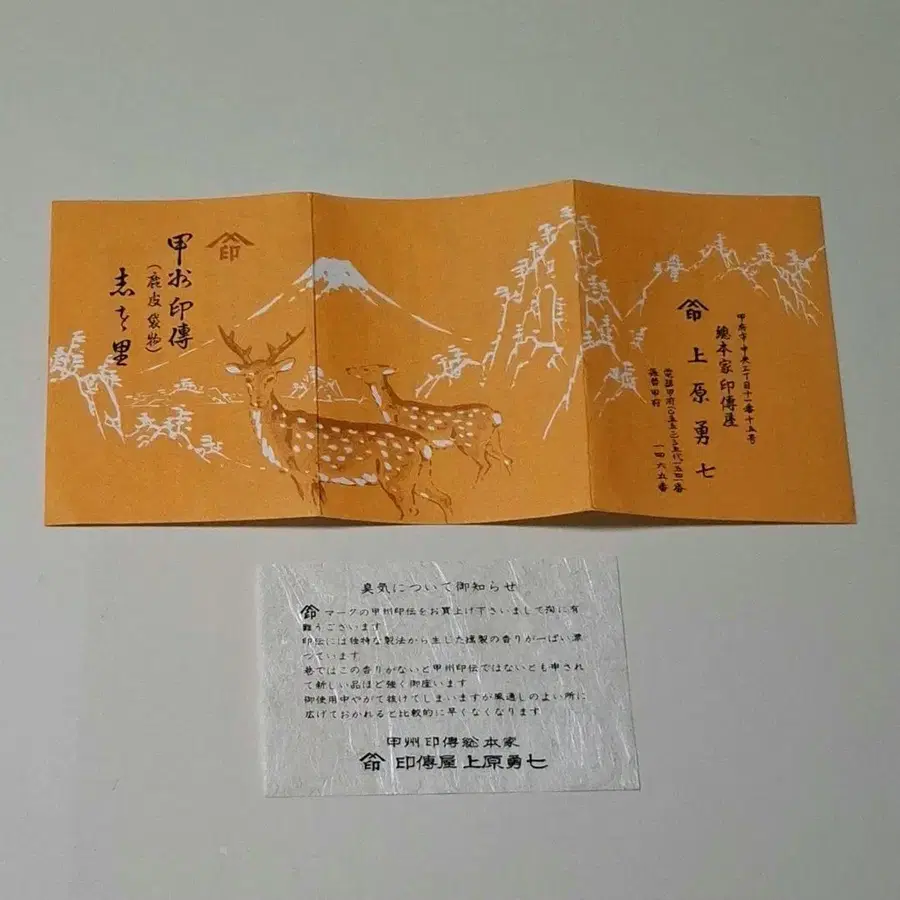 印
甲州印傳
(鹿皮袋物)
志を里
甲府市中央三丁目十一番十五号
總本家印傳屋
印 上原勇七
振替甲府 一四六五番
臭気について御知らせ
印マークの甲州印伝をお買上げ下さいまして掏に有
難うございます
印伝には独特な製法から生じた燻製の香りが一ぱい漂
つています
巷ではこの香りがないと甲州印伝ではないとも申され
て新しい品ほど強く御座います
御使用中やがて抜けてしまいますが風通しのよい所に
広げておかれると比較的に早くなくなります
甲州印傳総本家
印 印傳屋上原勇七